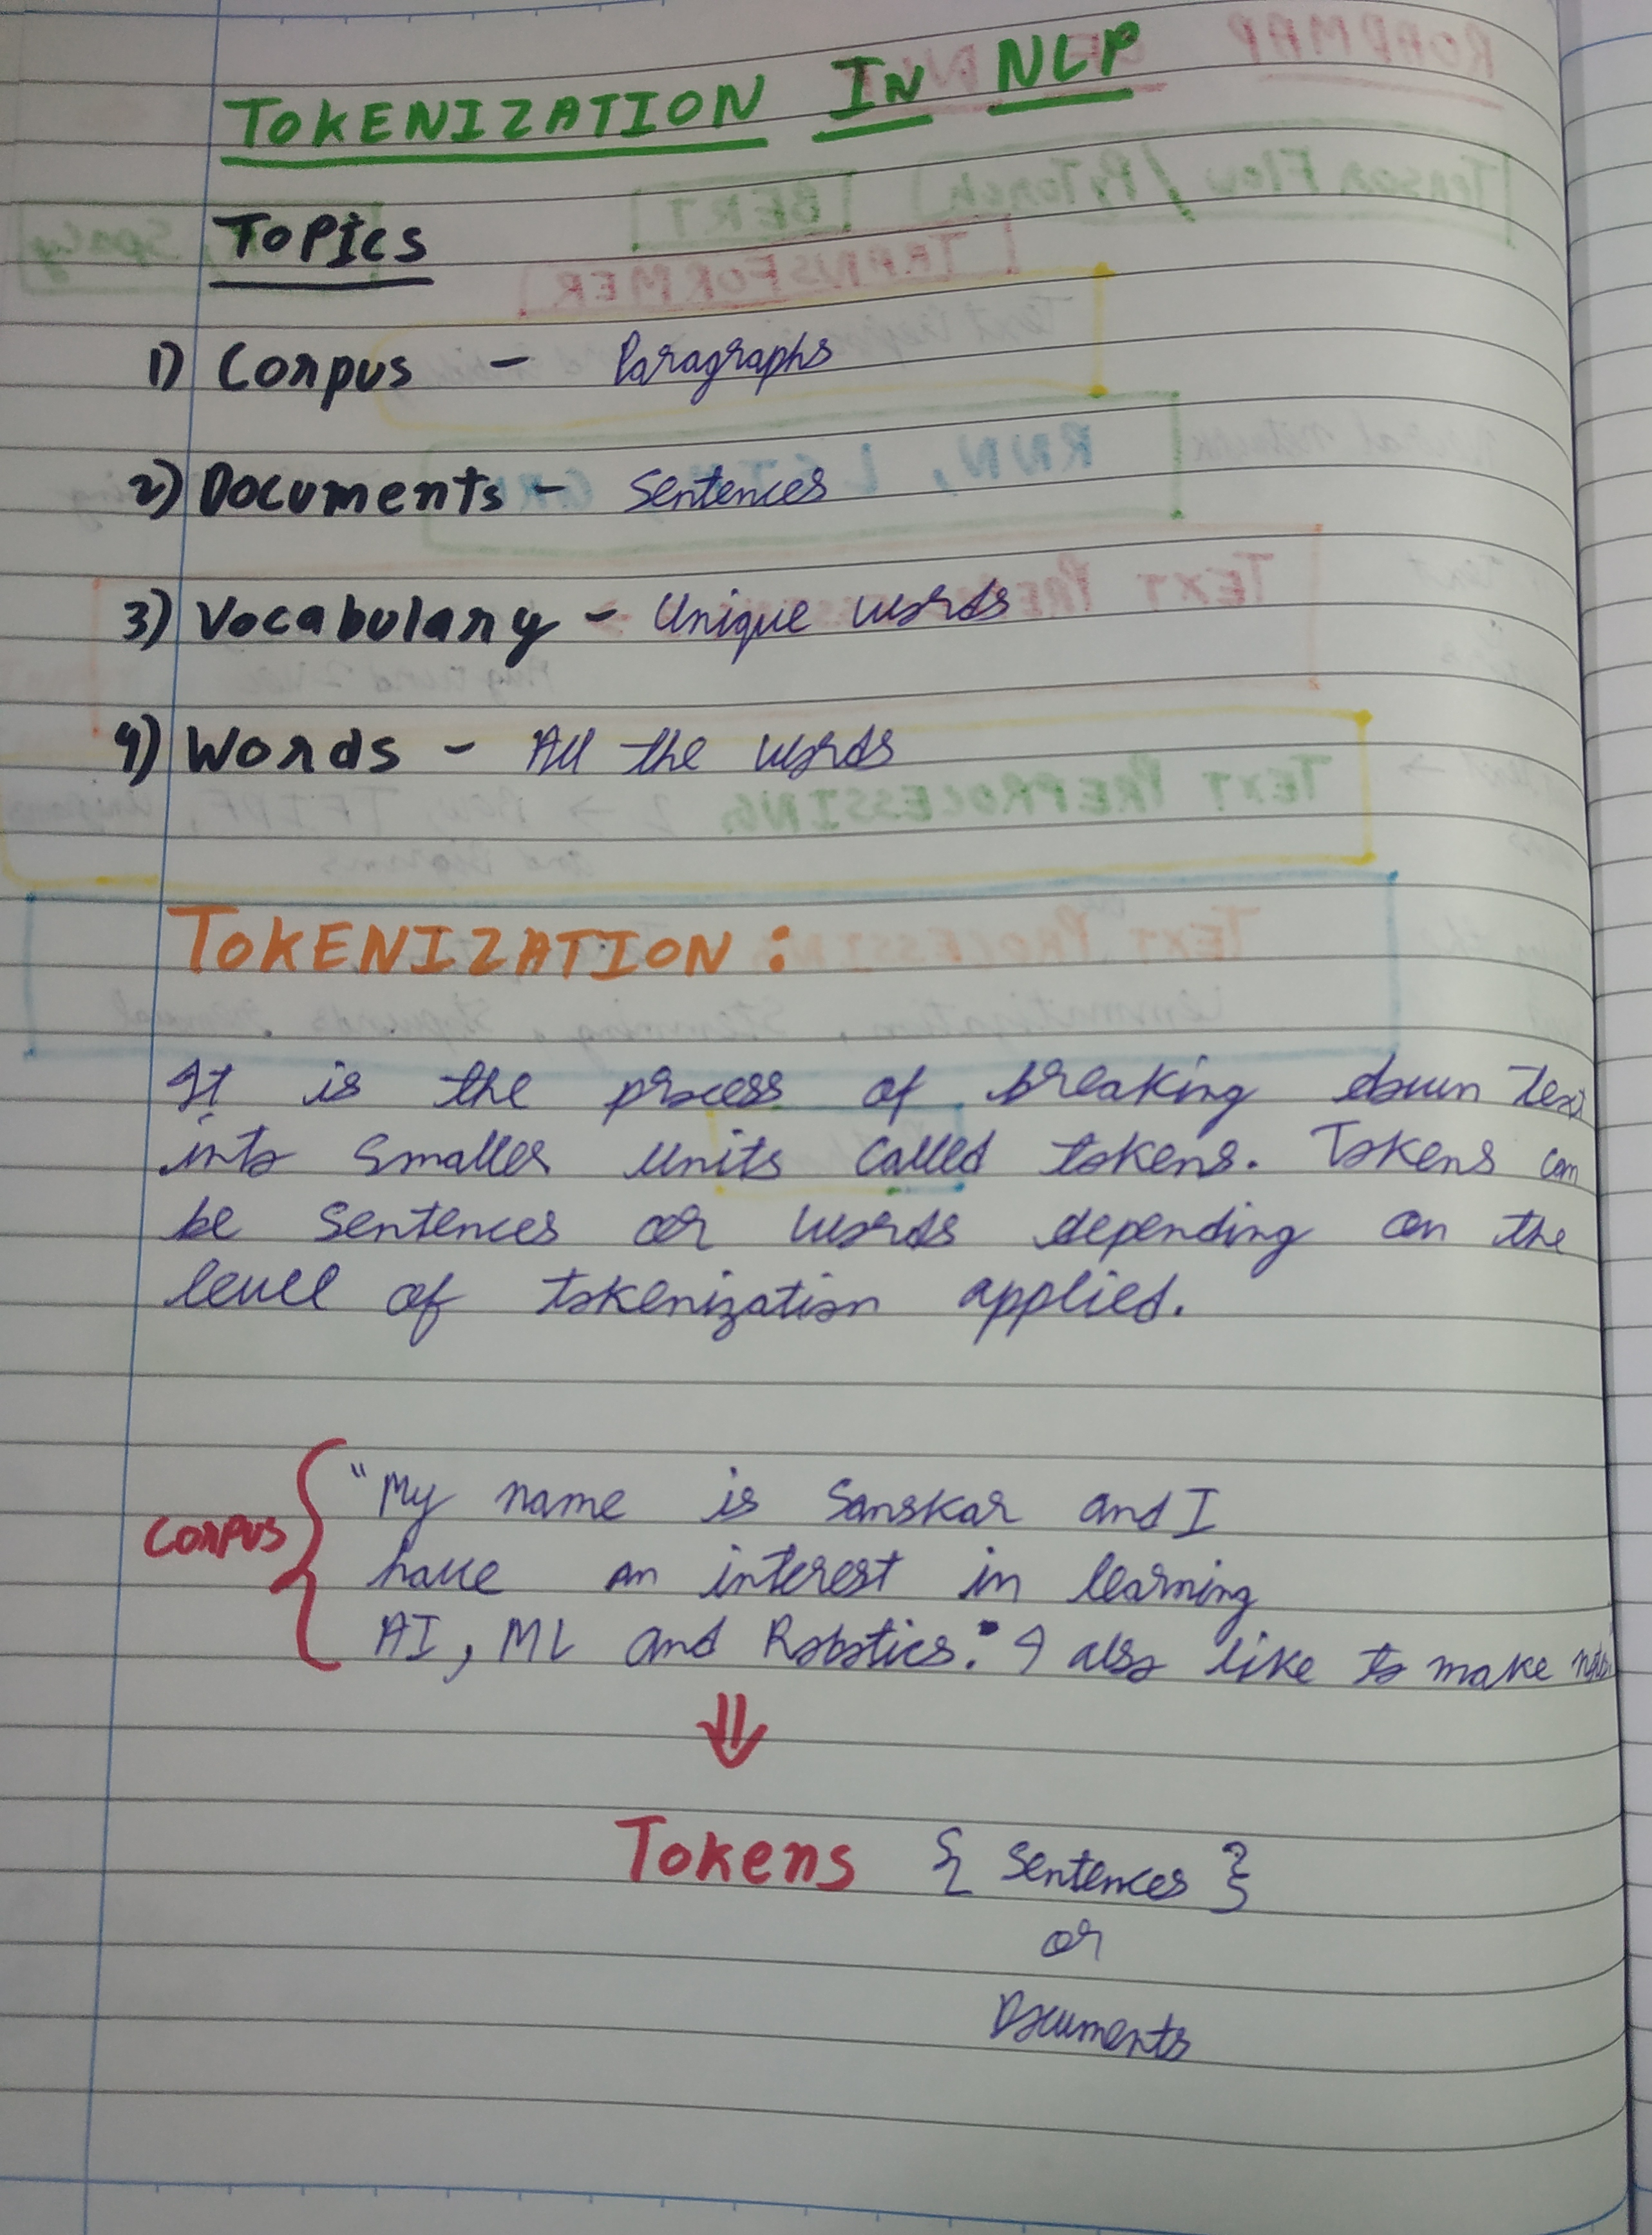 TOKENIZATION IN NLP
TOPICS
1) Corpus - Paragraphs
2) Documents - Sentences
3) Vocabulary - Unique words
4) Words - All the words
TOKENIZATION :
It is the process of breaking down Text
into smaller units called tokens. Tokens can
be sentences or words depending on the
level of tokenization applied.
"My name is Sanskar and I
Corpus
have an interest in learning
AI, ML and Robotics. I also like to make
Tokens { Sentences }
or
Documents